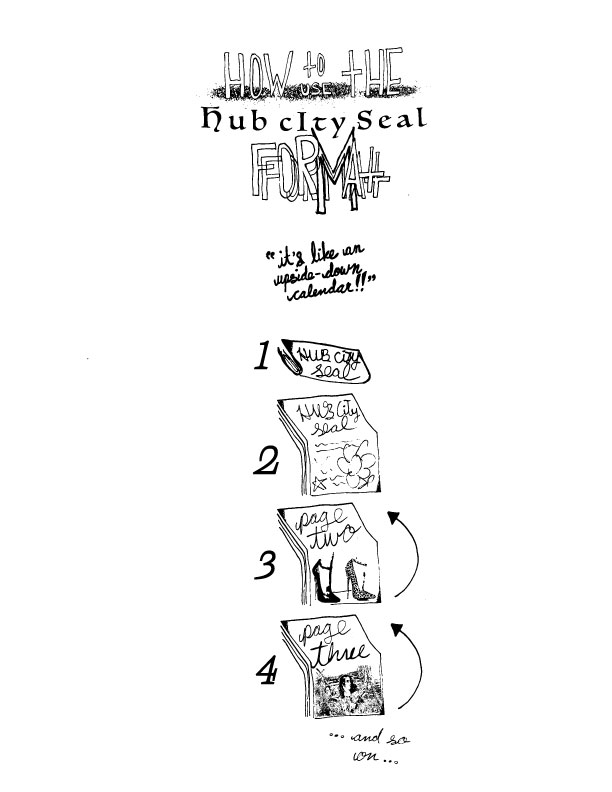 HOW to THE
USE
Hub cIty Seal
FFORMAtt
"it's like an
upside-down
calendar!!"
1
HUB City
Seal
HUB City
Seal
2
page
two
3
page
three
4
... and so
on ...